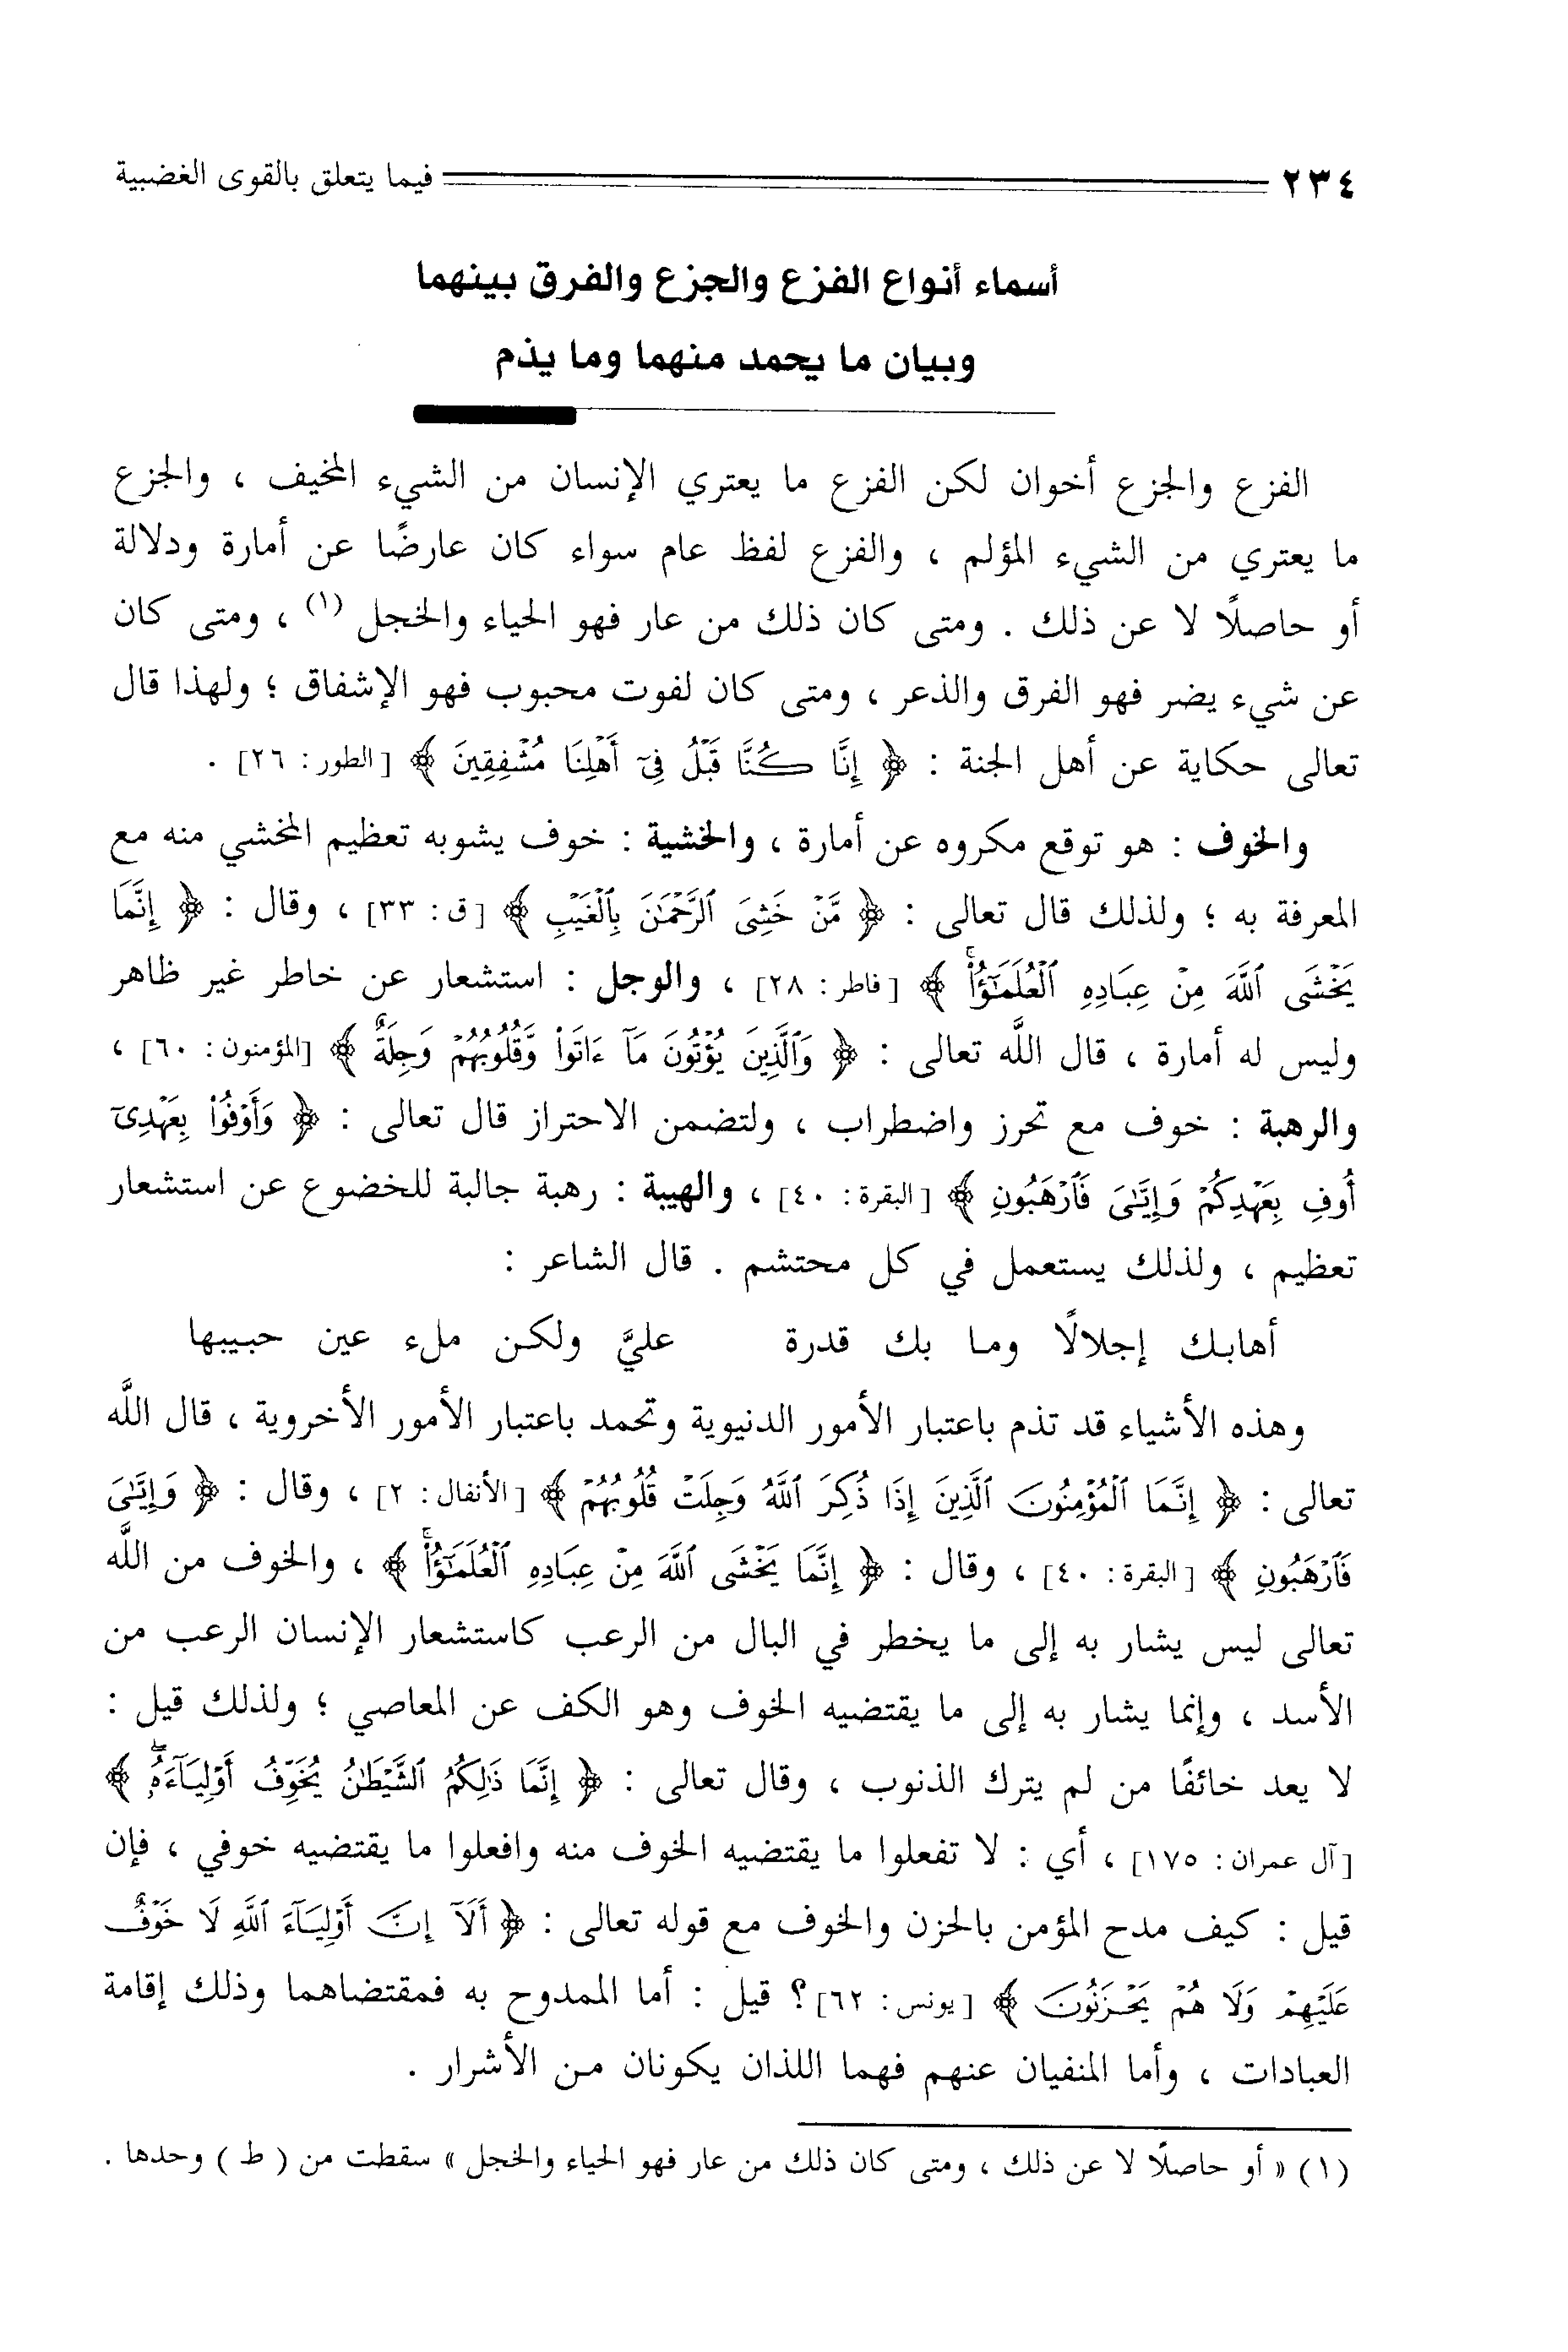 ٢٣٤ فيما يتعلق بالقوى الغضبية
أسماء أنواع الفزع والجزع والفرق بينهما
وبيان ما يحمد منهما وما يذم
الفزع والجزع أخوان لكن الفزع ما يعتري الإنسان من الشيء المخيف ، والجزع
ما يعتري من الشيء المؤلم ، والفزع لفظ عام سواء كان عارضًا عن أمارة ودلالة
أو حاصلًا لا عن ذلك . ومتى كان ذلك من عار فهو الحياء والخجل (١) ، ومتى كان
عن شيء يضر فهو الفرق والذعر ، ومتى كان لفوت محبوب فهو الإشفاق ؛ ولهذا قال
تعالى حكاية عن أهل الجنة : ﴿ إِنَّا كُنَّا قَبْلُ فِىٓ أَهْلِنَا مُشْفِقِينَ ﴾ [الطور: ٢٦] .
والخوف : هو توقع مكروه عن أمارة ، والخشية : خوف يشوبه تعظيم المخشي منه مع
المعرفة به ؛ ولذلك قال تعالى : ﴿ مَّنْ خَشِىَ ٱلرَّحْمَٰنَ بِٱلْغَيْبِ ﴾ [ق: ٣٣] ، وقال : ﴿ إِنَّمَا
يَخْشَى ٱللَّهَ مِنْ عِبَادِهِ ٱلْعُلَمَٰٓؤُا۟ۗ ﴾ [فاطر: ٢٨] ، والوجل : استشعار عن خاطر غير ظاهر
وليس له أمارة ، قال اللَّه تعالى : ﴿ وَٱلَّذِينَ يُؤْتُونَ مَآ ءَاتَوا۟ وَّقُلُوبُهُمْ وَجِلَةٌ ﴾ [المؤمنون: ٦٠] ،
والرهبة : خوف مع تحرز واضطراب ، ولتضمن الاحتراز قال تعالى : ﴿ وَأَوْفُوا۟ بِعَهْدِىٓ
أُوفِ بِعَهْدِكُمْ وَإِيَّٰىَ فَٱرْهَبُونِ ﴾ [البقرة: ٤٠] ، والهيبة : رهبة جالبة للخضوع عن استشعار
تعظيم ، ولذلك يستعمل في كل محتشم . قال الشاعر :
أهابك إجلالًا وما بك قدرة عليَّ ولكن ملء عين حبيبها
وهذه الأشياء قد تذم باعتبار الأمور الدنيوية وتحمد باعتبار الأمور الأخروية ، قال اللَّه
تعالى : ﴿ إِنَّمَا ٱلْمُؤْمِنُونَ ٱلَّذِينَ إِذَا ذُكِرَ ٱللَّهُ وَجِلَتْ قُلُوبُهُمْ ﴾ [الأنفال: ٢] ، وقال : ﴿ وَإِيَّٰىَ
فَٱرْهَبُونِ ﴾ [البقرة: ٤٠] ، وقال : ﴿ إِنَّمَا يَخْشَى ٱللَّهَ مِنْ عِبَادِهِ ٱلْعُلَمَٰٓؤُا۟ۗ ﴾ ، والخوف من اللَّه
تعالى ليس يشار به إلى ما يخطر في البال من الرعب كاستشعار الإنسان الرعب من
الأسد ، وإنما يشار به إلى ما يقتضيه الخوف وهو الكف عن المعاصي ؛ ولذلك قيل :
لا يعد خائفًا من لم يترك الذنوب ، وقال تعالى : ﴿ إِنَّمَا ذَٰلِكُمُ ٱلشَّيْطَٰنُ يُخَوِّفُ أَوْلِيَآءَهُۥ ﴾
[آل عمران: ١٧٥] ، أي : لا تفعلوا ما يقتضيه الخوف منه وافعلوا ما يقتضيه خوفي ، فإن
قيل : كيف مدح المؤمن بالحزن والخوف مع قوله تعالى : ﴿ أَلَآ إِنَّ أَوْلِيَآءَ ٱللَّهِ لَا خَوْفٌ
عَلَيْهِمْ وَلَا هُمْ يَحْزَنُونَ ﴾ [يونس: ٦٢] ؟ قيل : أما الممدوح به فمقتضاهما وذلك إقامة
العبادات ، وأما المنفيان عنهم فهما اللذان يكونان من الأشرار .
(١) « أو حاصلًا لا عن ذلك ، ومتى كان ذلك من عار فهو الحياء والخجل » سقطت من ( ط ) وحدها .